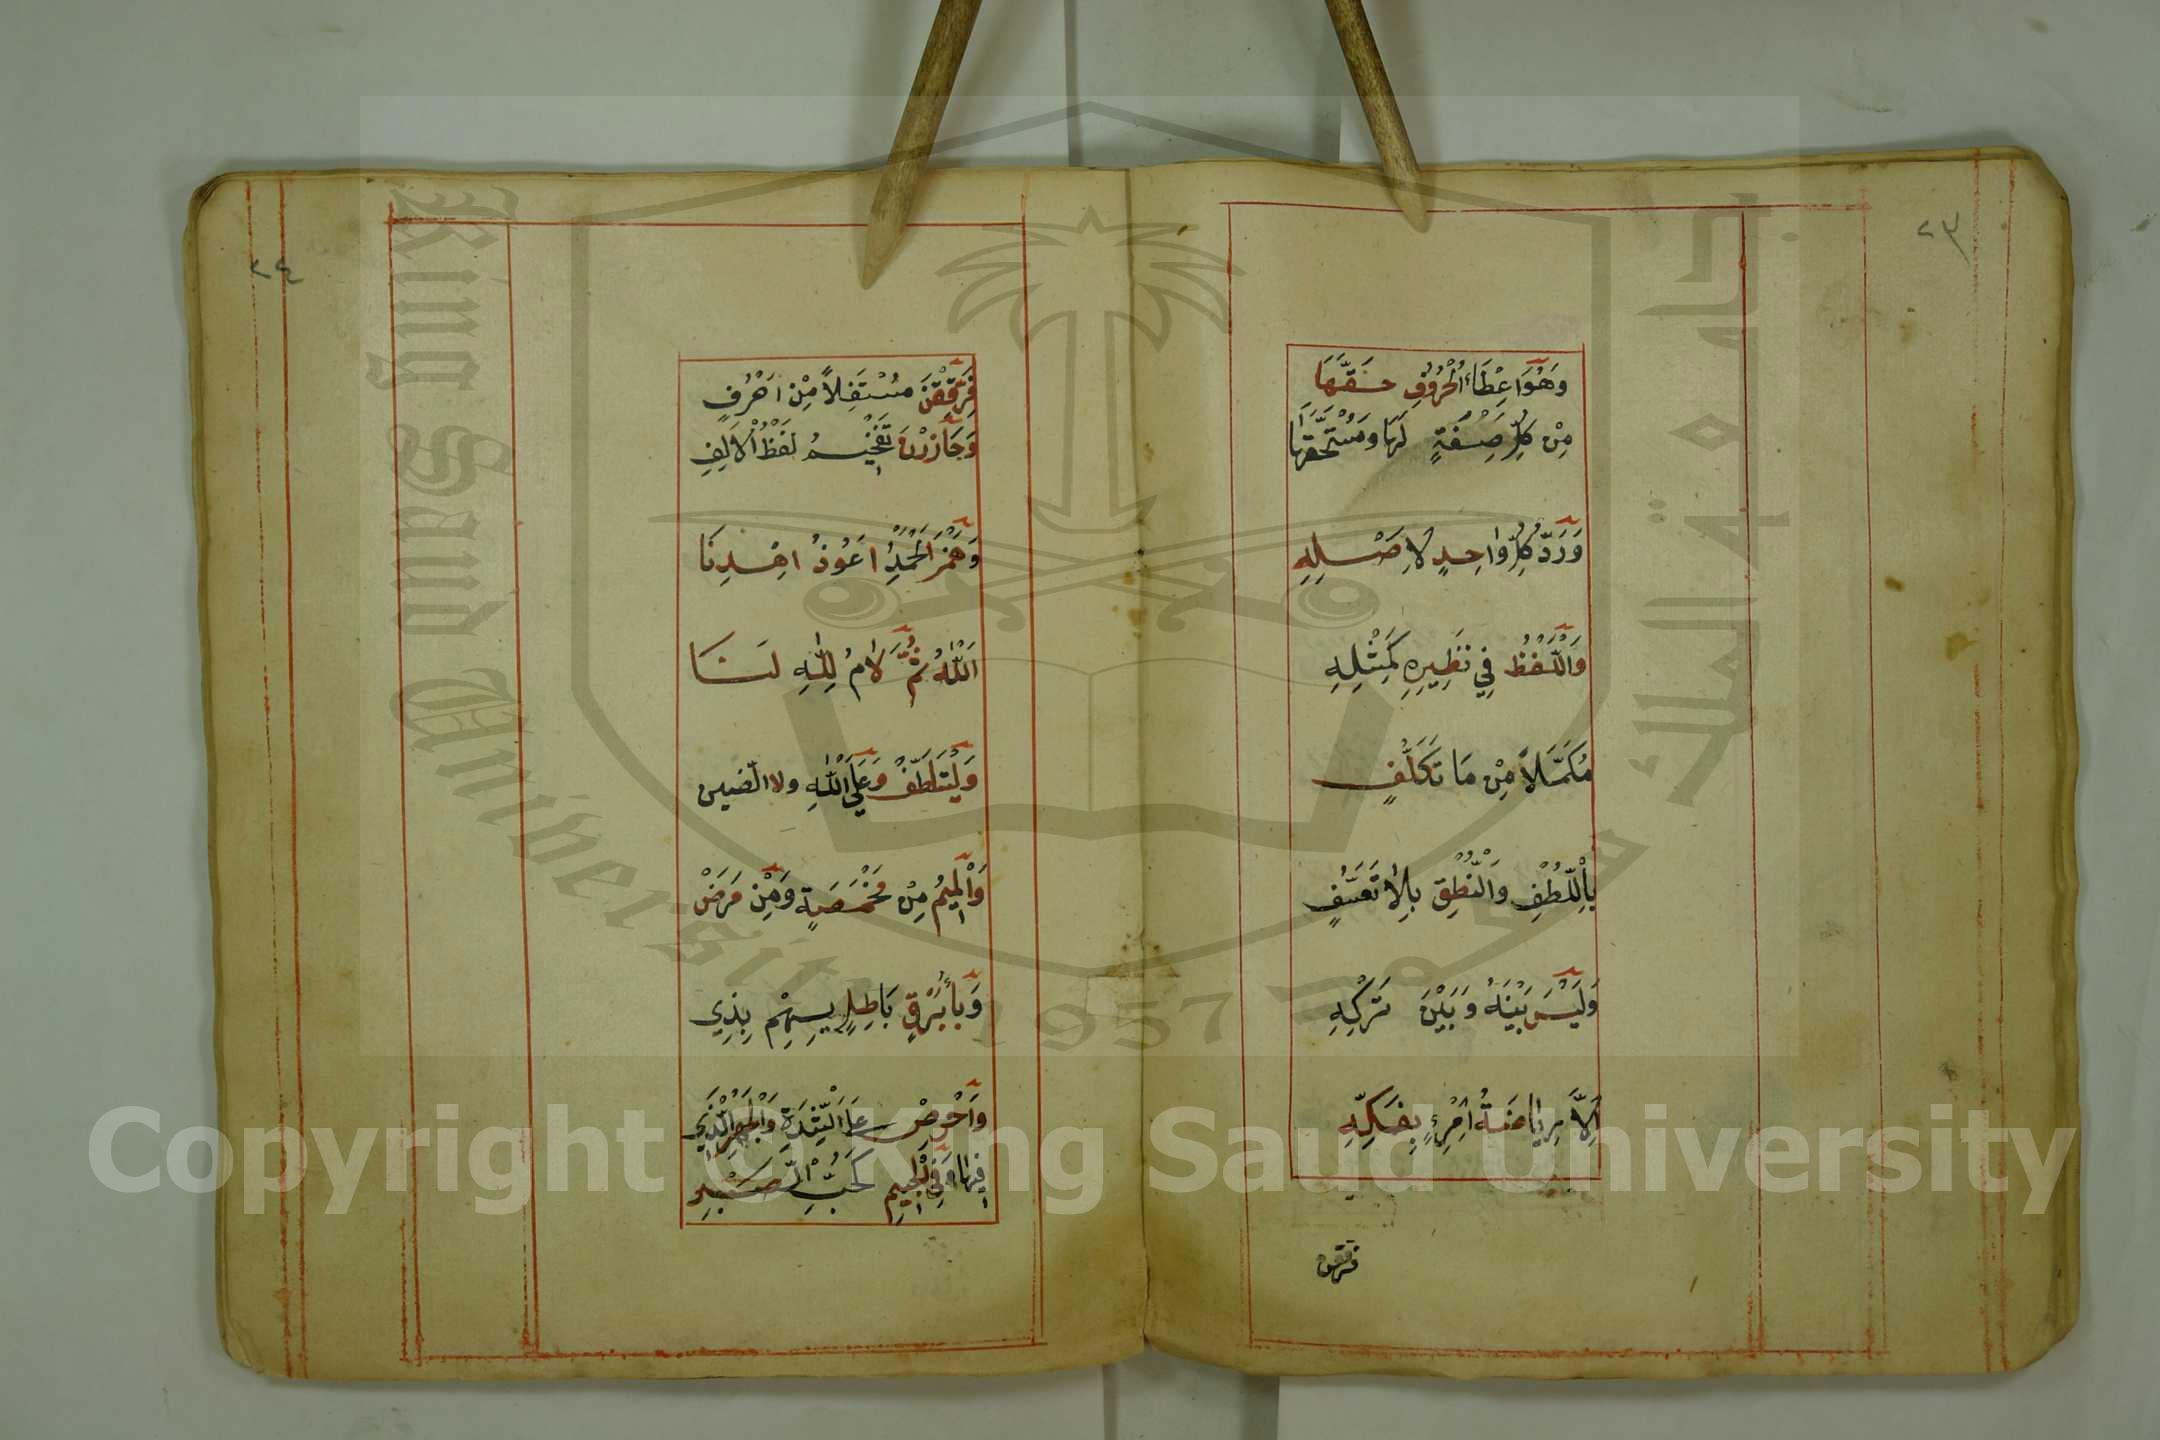 ٢٣
وَهُوَ اعِْطَاءُ الْحُرُوفِ حَقَّهَا
مِنْ كُلِّ صِفَةٍ لَهَا وَمُسْتَحَقَّهَا
وَرَدُّ كُلِّ وَاحِدٍ لِاَصْلِهِ
وَاللَّفْظُ فِي نَظِيرِهِ كَمِثْلِهِ
مُكَمَّلاً مِنْ مَا تَكَلُّفٍ
بِاللُّطْفِ وَالنُّطْقِ بِلَا تَعَسُّفٍ
وَلَيْسَ بَيْنَهُ وَبَيْنَ تَرْكِهِ
اِلَّا رِيَاضَةُ امْرِءٍ بِفَكِّهِ
فرققن
٢٤
فَرَقِّقَنْ مُسْتَفِلاً مِنْ اَحْرُفٍ
وَحَاذِرَنْ تَفْخِيمُ لَفْظُ الْاَلِفِ
وَهَمْزَ اَلْحَمْدُ اَعُوذُ اهْدِنَا
اَللّٰهُ ثُمَّ لَامُ لِلّٰهِ لَنَا
وَلْيَتَلَطَّفْ وَعَلَى اللّٰهِ ولا الضين
وَالْمِيمُ مِنْ مَخْمَصَةٍ وَمِنْ مَرَضْ
وَبَأَبَرْقٍ بَاطِلٍ بِهِمْ بِذِي
وَاحْرِصْ عَلَى الشِّدَّةِ وَالْجَهْرِ الَّذِي
فِيهَا وَفِي الْجِيمِ كَحُبِّ الصَّبْرِ
King Saud University
جامعة الملك سعود
1957
Copyright © King Saud University